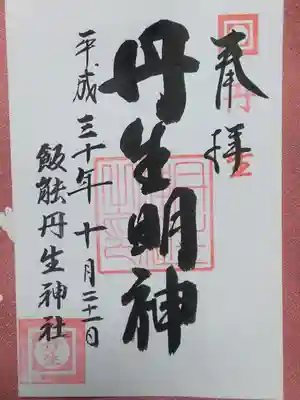 奉拝
丹生明神
平成三十年十月二十一日
飯能丹生神社